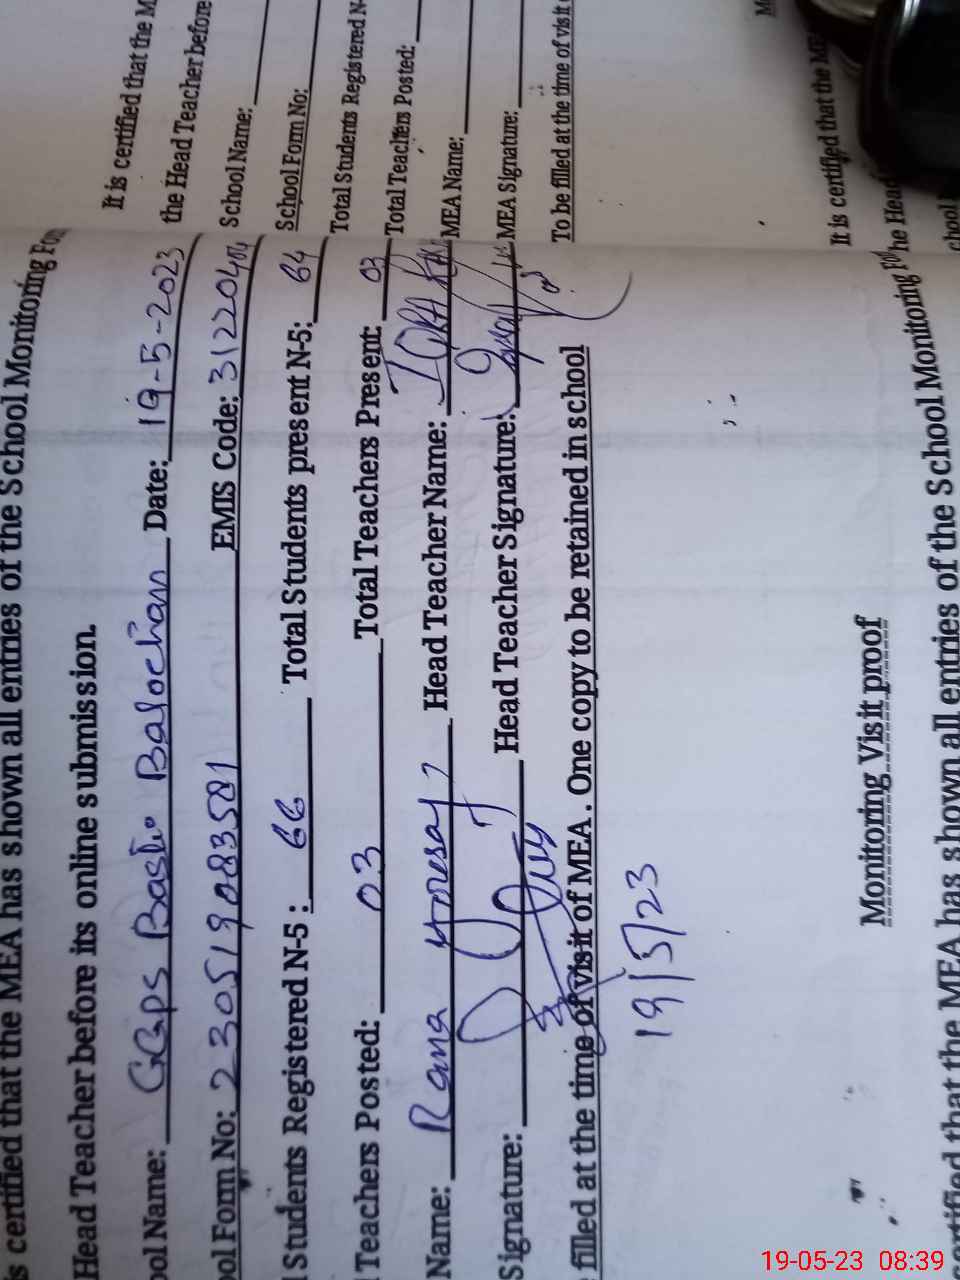 is certified that the MEA has shown all entries of the School Monitoring Form
Head Teacher before its online submission.
ool Name: GGPS Basti Balochan Date: 19-5-2023
ool Form No: 230519083581 EMIS Code: 31220404
l Students Registered N-5 : 66 Total Students present N-5: 64
l Teachers Posted: 03 Total Teachers Present: 03
Name: Rana Head Teacher Name: IQRA
Signature: Head Teacher Signature:
e filled at the time of visit of MEA . One copy to be retained in school
19/5/23
Monitoring Visit proof
certified that the MEA has shown all entries of the School Monitoring Fo
It is certified that the M
the Head Teacher before
School Name:
School Form No:
Total Students Registered N-
Total Teachers Posted:
MEA Name:
MEA Signature:
To be filled at the time of visit
M
It is certified that the MEA
he Head
chool
19-05-23 08:39